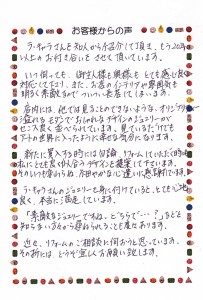 お客様からの声
ラ・チャラさんを知人から紹介して頂き、もう20年
以上のお付き合いをさせて頂いています。
いつ伺っても、御主人様も奥様も とても感じ良く
対応して下さり、また、お店のインテリアや雰囲気も
明るく素敵なので ついつい長居してしまいます。
店内には、他では見ることのできないような、オリジナリティ
溢れる モダンでおしゃれなデザインのジュエリーが
センス良く並べられています。見ているだけでも
アートの世界に入ったように幸せな気分になります。
新たに購入する時には勿論、リフォームしていただく時も
私にとても良く似合うデザインを提案して下さいます。
そのいつも変わらぬ、お心づかいに 感謝しています。
ラ・チャラさんのジュエリーを身に付けていると、とても心地
良く、本当に満足しています。
「素敵なジュエリーですね。どちらで…?」などと
知らない方から尋ねられることも度々あります。
近々、リフォームのご相談に伺おうと思っています。
その折には、どうぞ宜しくお願い致します。